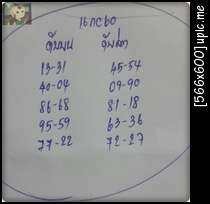 16กC60
คู่บน คู่ล่าง
13-31 45-54
40-04 09-90
86-68 81-18
95-59 63-36
77-22 72-27
[566x600]upic.me